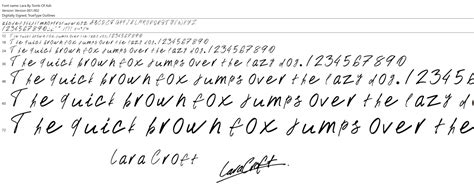 Font name: Lara By Tactile Of Asti
Version: Version 001.002
Digitally Signed, TrueType Outlines
abcdefghijklmnopqrstuvwxyz ABCDEFGHIJKLMNOPQRSTUVWXYZ
1234567890
The quick brown fox jumps over the lazy dog. 1234567890
The quick brown fox jumps over the lazy dog. 1234567890
The quick brown fox jumps over the lazy dog. 1234567890
The quick brown fox jumps over the lazy dog. 1234567890
The quick brown fox jumps over the lazy dog. 123456
The quick brown fox jumps over the lazy do
The quick brown fox jumps over the
Lara Croft
Lara Croft